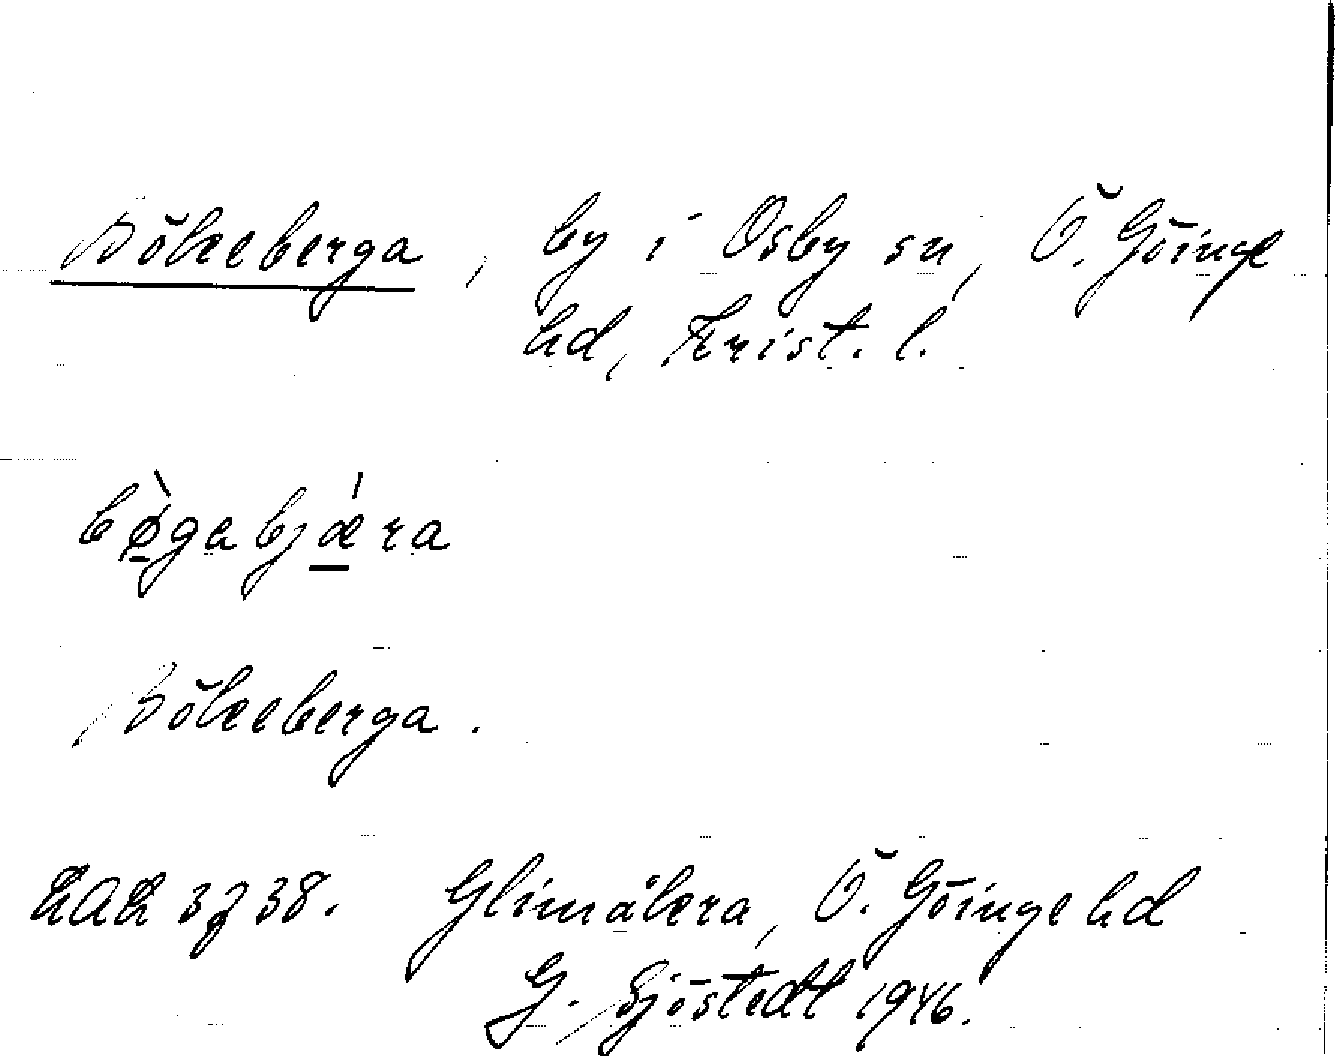 Bökeberga, by i Osby sn, Ö. Göinge
hd, Krist. l.
bø̀gabjǽra
Bökeberga.
LAL 3738. Glimåkra, Ö. Göinge hd
G. Sjöstedt 1946.